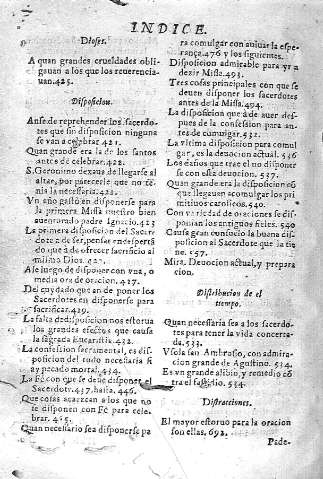 INDICE.
Dioses.
A quan grandes crueldades obli-
gauan a los que los reuerencia-
uan. 425.
Disposicion.
Anse de reprehender los sacerdo-
tes que sin disposicion ninguna
se van a celebrar. 421.
Quan grande era la de los santos
antes de celebrar. 422.
S. Geronimo dexaua de llegarse al
altar, por parecerle que no te-
nia la necessaria. 422.
Vn año gastò en disponerse para
la primera Missa nuestro bien
auenturado padre Ignacio. 423
La primera disposicion del Sacer
dote a de ser, pensar en despertá
do que a de ofrecer sacrificio al
mismo Dios. 427.
A se luego de disponer con vna, o
media ora de oracion. 427.
Del cuydado que an de poner los
Sacerdotes en disponerse para
sacrificar. 429.
La falta de disposicion nos estorua
los grandes efectos que causa
la sagrada Eucaristia. 432.
La confession sacramental, es dis-
posicion del todo necessaria si
ay pecado mortal. 434.
La Fè con que se deue disponer el
Sacerdote. 437. hasta. 446.
Que cosas acarrean a los que no
se disponen con Fè para cele-
brar.
Quan necessario sea disponerse pa
ra comulgar con auiuar la espe-
rança. 476 y los siguientes.
Disposicion admirable para yr a
dezir Missa. 493.
Tres cosas principales con que se
deuen disponer los sacerdotes
antes de la Missa. 494.
La disposicion que à de auer des-
pues de la confession para an-
tes de comulgar. 532.
La vltima disposicion para comul
gar, es la deuocion actual. 536
Los daños que trae el no disponer
se con esta deuocion. 537.
Quan grande era la disposicion có
que llegauan a comulgar los pri
mitiuos catolicos. 540.
Con variedad de oraciones se dis-
ponian los antiguos fieles. 540
Quan gran consuelo la buena dis-
posicion al Sacerdote que la tie
ne. 557.
Mira. Deuocion actual, y prepara
cion.
Distribucion de el
tiempo.
Quan necessaria sea a los sacerdo-
tes para tener la vida concerta-
da. 533.
Vsola san Ambrosio, con admira-
cion grande de Agustino. 534.
Es vn grande aliuio y remedio có
tra el fastidio. 534.
Distracciones.
El mayor estoruo para la oracion
son ellas. 692.
Pade-